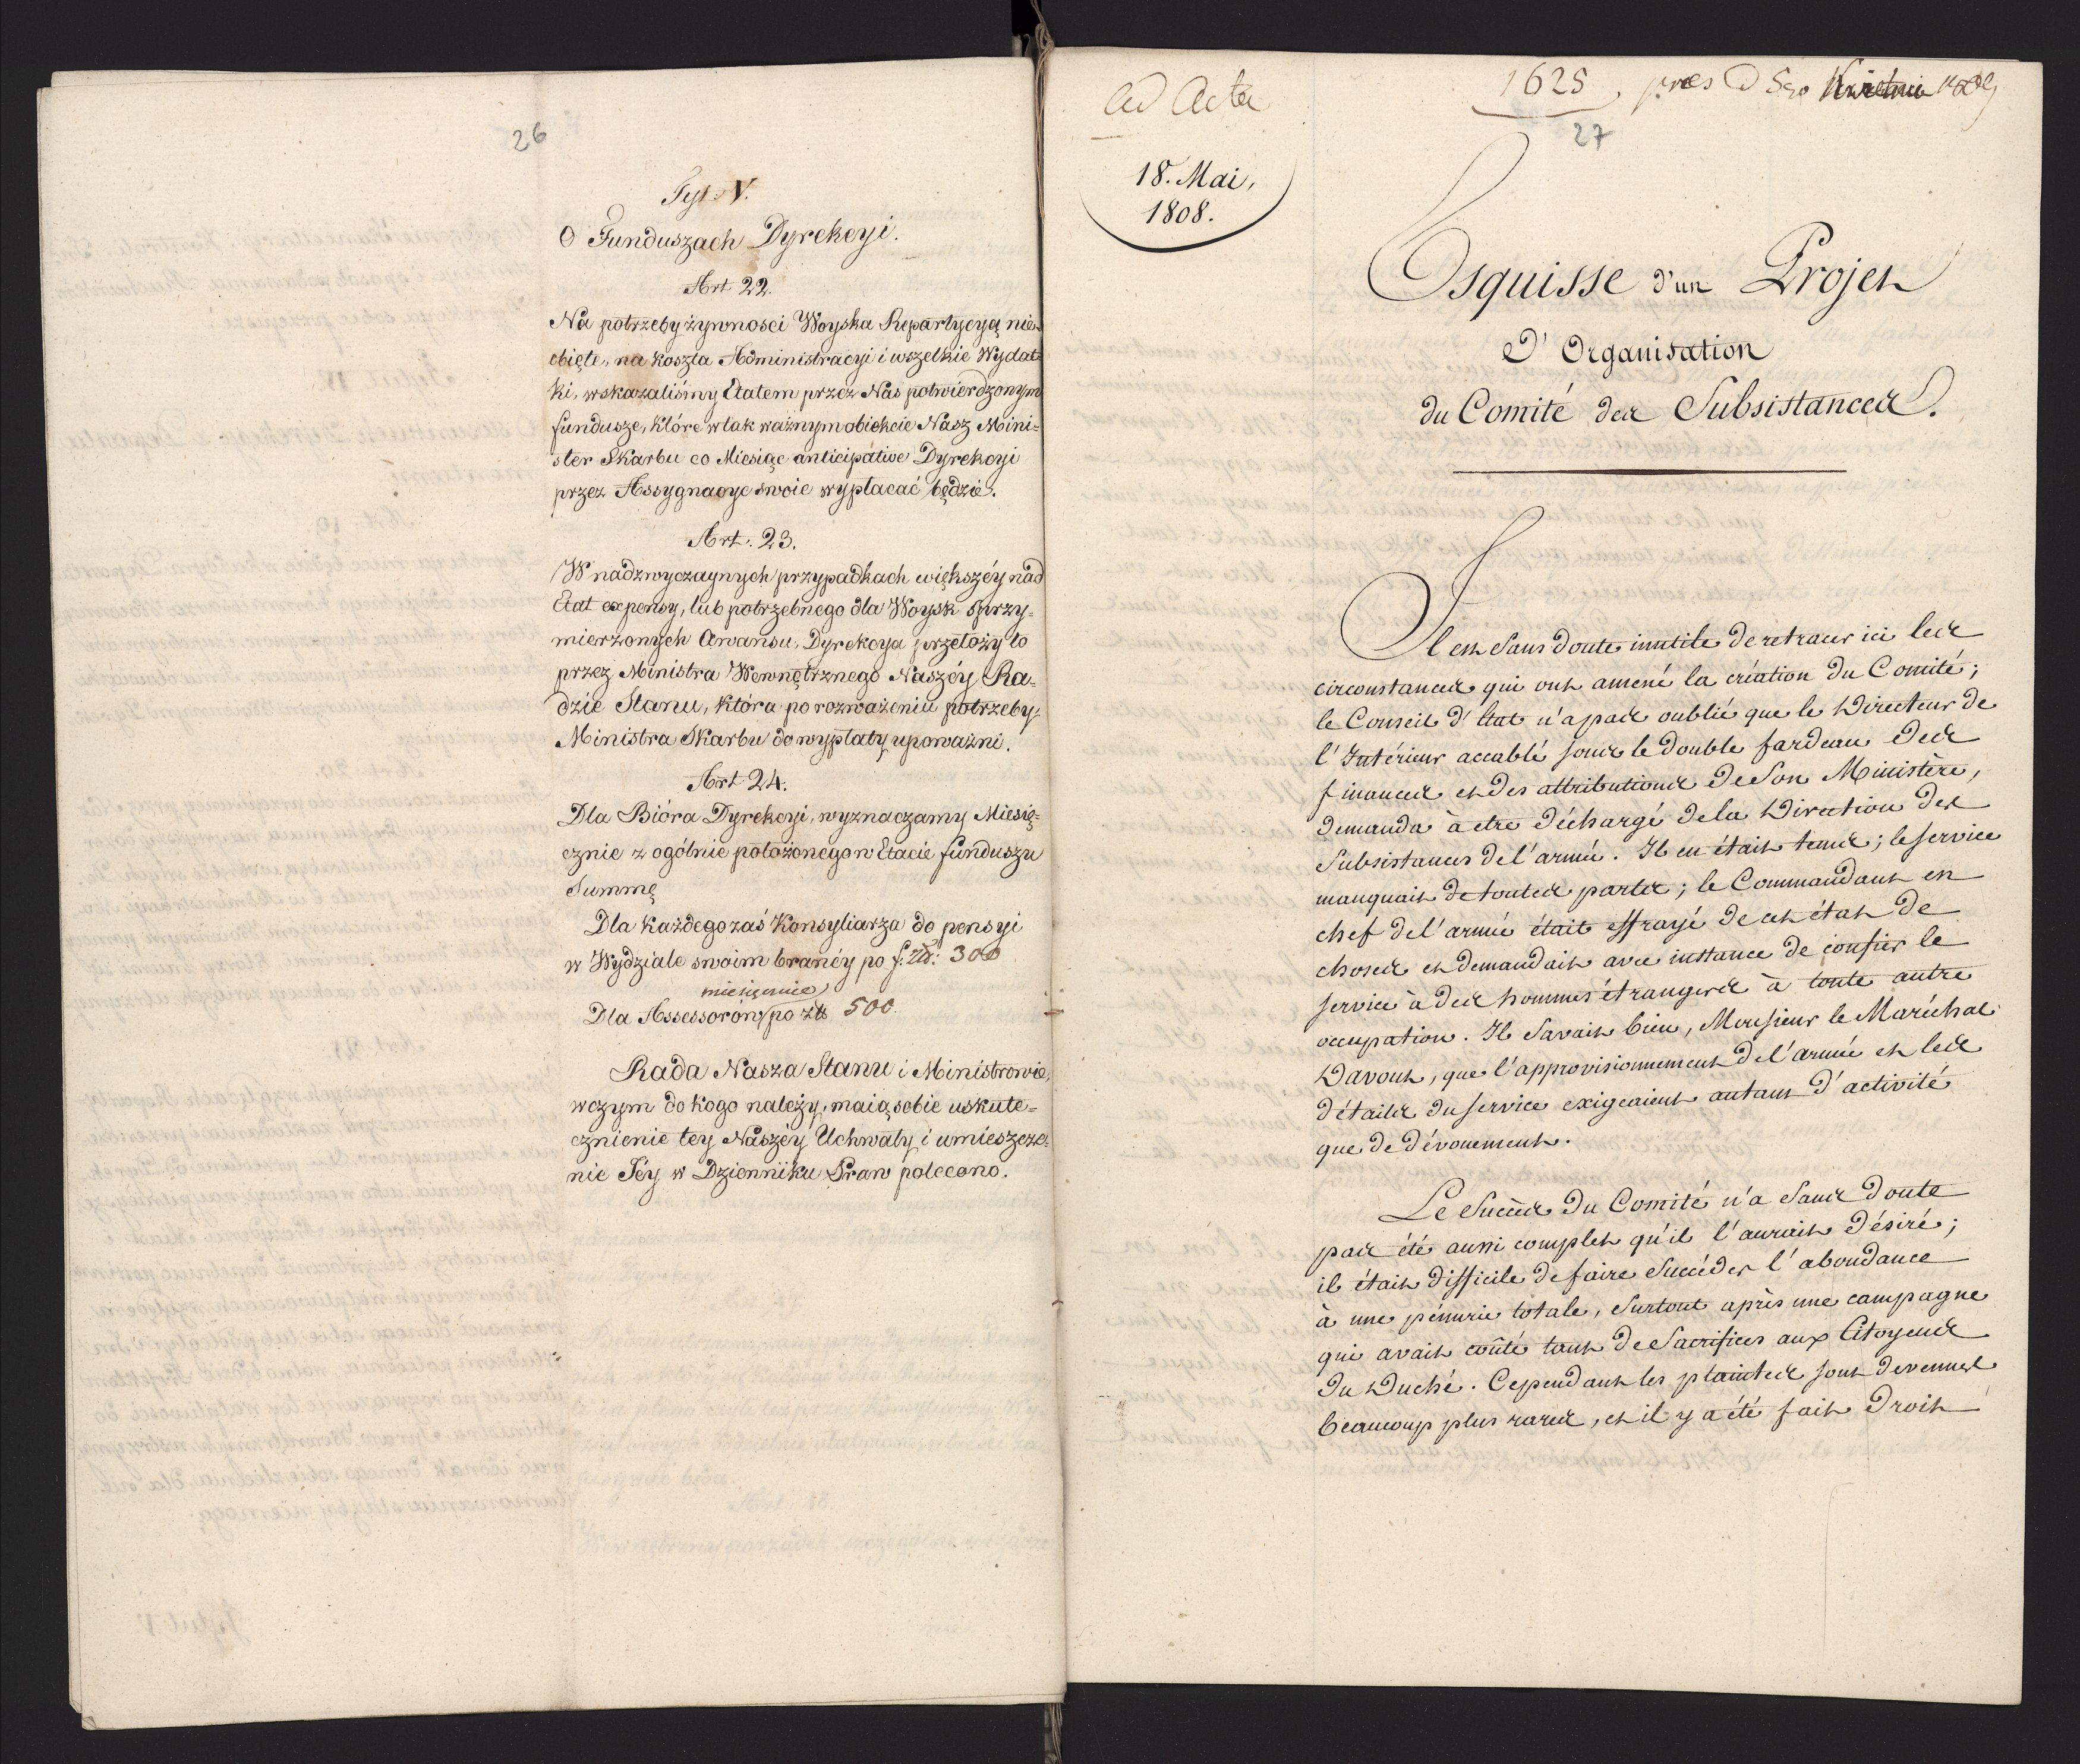 26
Tyt. V.
O Funduszach Dyrekcyi.
Art 22.
Na potrzeby żywności Woyska Repartycyą nie=
obięte, na koszta Administracyi i wszelkie Wydat=
ki, wskazaliśmy Etatem przez Nas potwierdzonym
fundusze, które w tak ważnym obiekcie Nasz Mini=
ster Skarbu co Miesiąc anticipative Dyrekcyi
przez Assygnacye swoie wypłacać będzie.
Art. 23.
W nadzwyczaynych przypadkach większéy nad
Etat expensy, lub potrzebnego dla Woysk sprzy=
mierzonych Awansu, Dyrekcya przełoży to
przez Ministra Wewnętrznego Naszéy Ra=
dzie Stanu, która po rozważeniu potrzeby,
Ministra Skarbu do wypłaty upoważni.
Art 24.
Dla Bióra Dyrekcyi, wyznaczamy Miesię=
cznie z ogólnie położonego w Etacie funduszu
Summę
Dla każdego zaś Konsyliarza do pensyi
w Wydziale swoim branéy po f: Zł: 300
miesięcznie
Dla Assessorow po zł 500.
Rada Nasza Stanu i Ministrowie,
w czym do kogo należy, maią sobie uskute=
cznienie tey Naszey Uchwały, i umieszcze=
nie Jéy w Dzienniku Praw polecono.
ad Acta
18. Mai,
1808.
1625. pres D 5go Kwietnia 1809
27
Esquisse d'un Projet
D'Organisation
du Comité des Subsistances.
Il est sans doute inutile de retracer ici les
circonstances qui ont amené la création du Comité;
le Conseil d'État n'a pas oublié que le Directeur de
l'Intérieur accablé sous le double fardeau des
finances et des attributions de son Ministère,
demanda à etre déchargé de la Direction des
Subsistances de l'armée. Il en était tems; le service
manquait de toutes partes; le Commandant en
chef de l'armée était effrayé de cet état de
choses et demandait avec instance de confier le
service à des hommes étrangers à toute autre
occupation. Il savait bien, Monsieur le Maréchal
Davout, que l'approvisionnement de l'armée et les
détails du service exigeaient autant d'activité
que de dévouement.
Le Succès du Comité n'a sans doute
pas été aussi complet qu'il l'aurait désiré;
il était difficile de faire succéder l'abondance
à une pénurie totale, surtout après une campagne
qui avait coûté tant de Sacrifices aux Citoyens
du Duché. Cependant les plaintes sont devenues
beaucoup plus rares, et il y a été fait droit